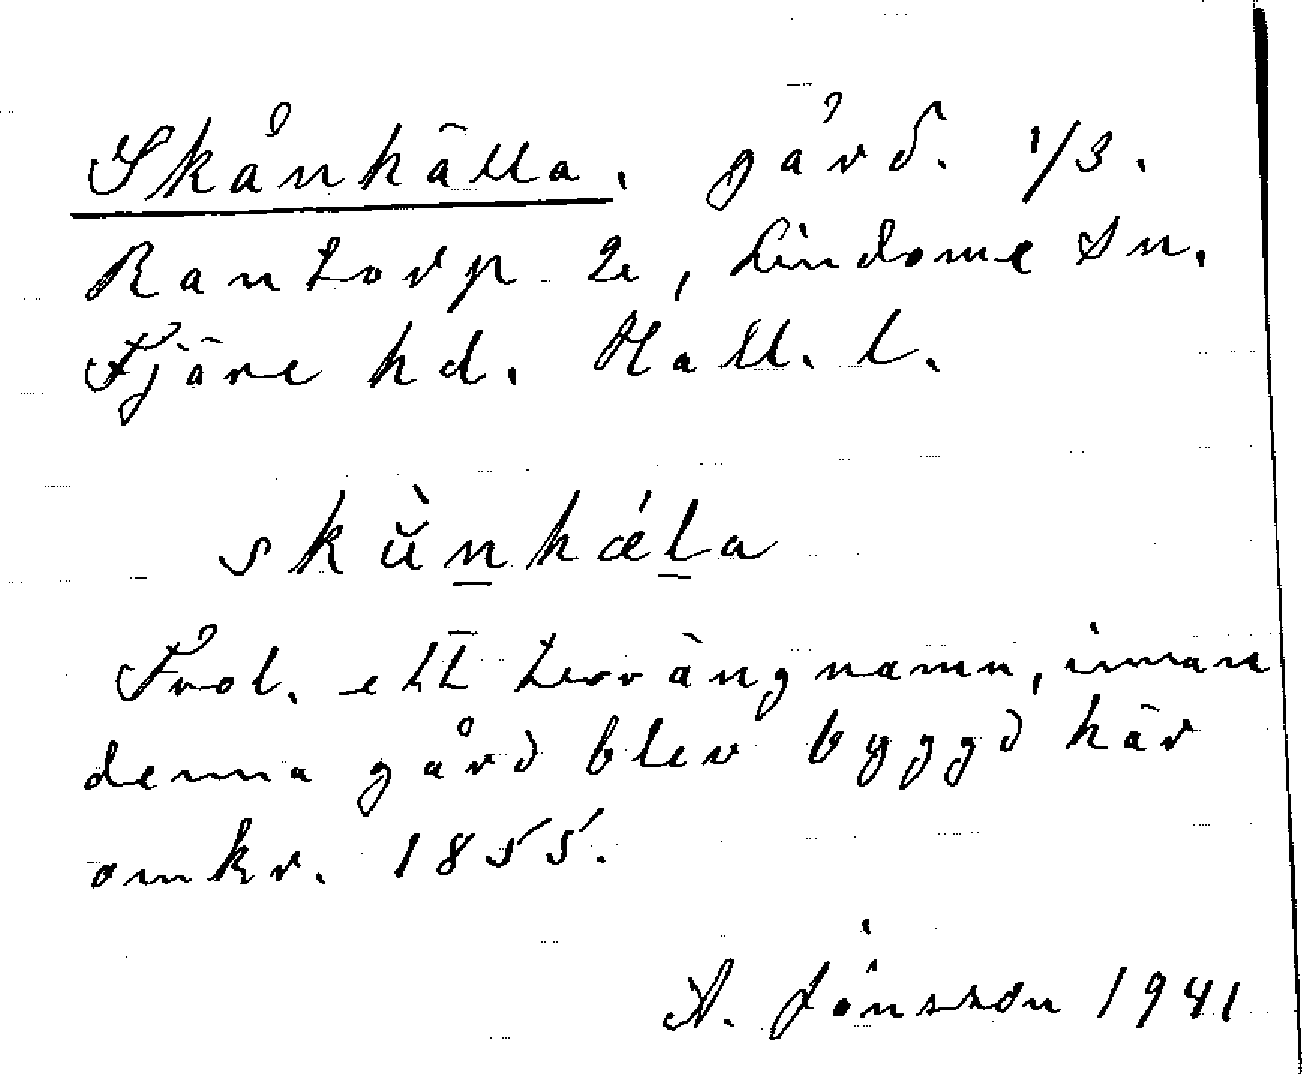 Skånhälla. gård. 1/3.
Rantorp 2, Lindome sn.
Fjäre hd. Hall. l.
skŭ̀nhǽla
Trol. ett terrängnamn, innan
denna gård blev byggd här
omkr. 1855.
A. Jönsson 1941